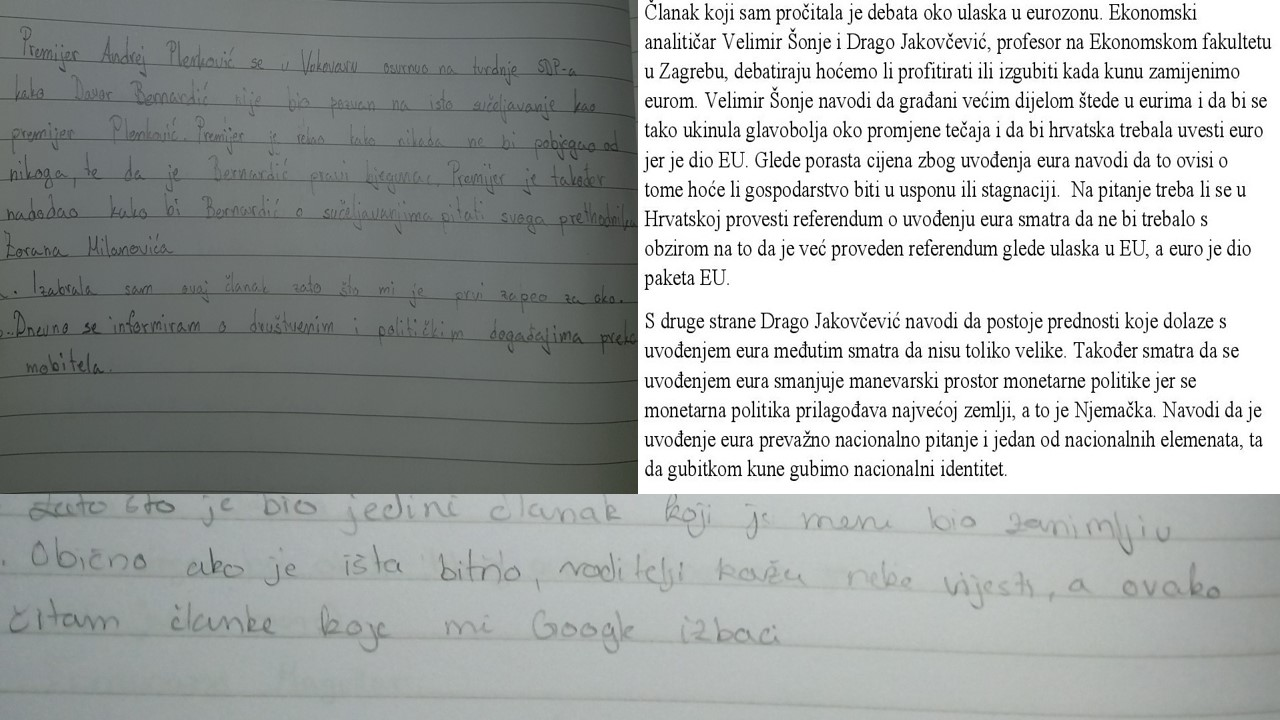 Premijer Andrej Plenković se u Vukovaru osvrnuo na tvrdnje SDP-a
kako Davor Bernardić nije bio pozvan na isto sučeljavanje kao
premijer Plenković. Premijer je rekao kako nikada ne bi pobjegao od
nikoga, te da je Bernardić pravi bjegunac. Premijer je također
nadodao kako bi Bernardić o sučeljavanjima pitati svoga prethodnika
Zorana Milanovića
. Izabrala sam ovaj članak zato što mi je prvi zapeo za oko.
. Dnevno se informiram o društvenim i političkim događajima preko
mobitela.
Članak koji sam pročitala je debata oko ulaska u eurozonu. Ekonomski
analitičar Velimir Šonje i Drago Jakovčević, profesor na Ekonomskom fakultetu
u Zagrebu, debatiraju hoćemo li profitirati ili izgubiti kada kunu zamijenimo
eurom. Velimir Šonje navodi da građani većim dijelom štede u eurima i da bi se
tako ukinula glavobolja oko promjene tečaja i da bi hrvatska trebala uvesti euro
jer je dio EU. Glede porasta cijena zbog uvođenja eura navodi da to ovisi o
tome hoće li gospodarstvo biti u usponu ili stagnaciji. Na pitanje treba li se u
Hrvatskoj provesti referendum o uvođenju eura smatra da ne bi trebalo s
obzirom na to da je već proveden referendum glede ulaska u EU, a euro je dio
paketa EU.
S druge strane Drago Jakovčević navodi da postoje prednosti koje dolaze s
uvođenjem eura međutim smatra da nisu toliko velike. Također smatra da se
uvođenjem eura smanjuje manevarski prostor monetarne politike jer se
monetarna politika prilagođava najvećoj zemlji, a to je Njemačka. Navodi da je
uvođenje eura prevažno nacionalno pitanje i jedan od nacionalnih elemenata, ta
da gubitkom kune gubimo nacionalni identitet.
zato što je bio jedini članak koji je mene bio zanimljiv
. Obično ako je išta bitno, roditelji kažu neke vijesti, a ovako
čitam članke koje mi Google izbaci